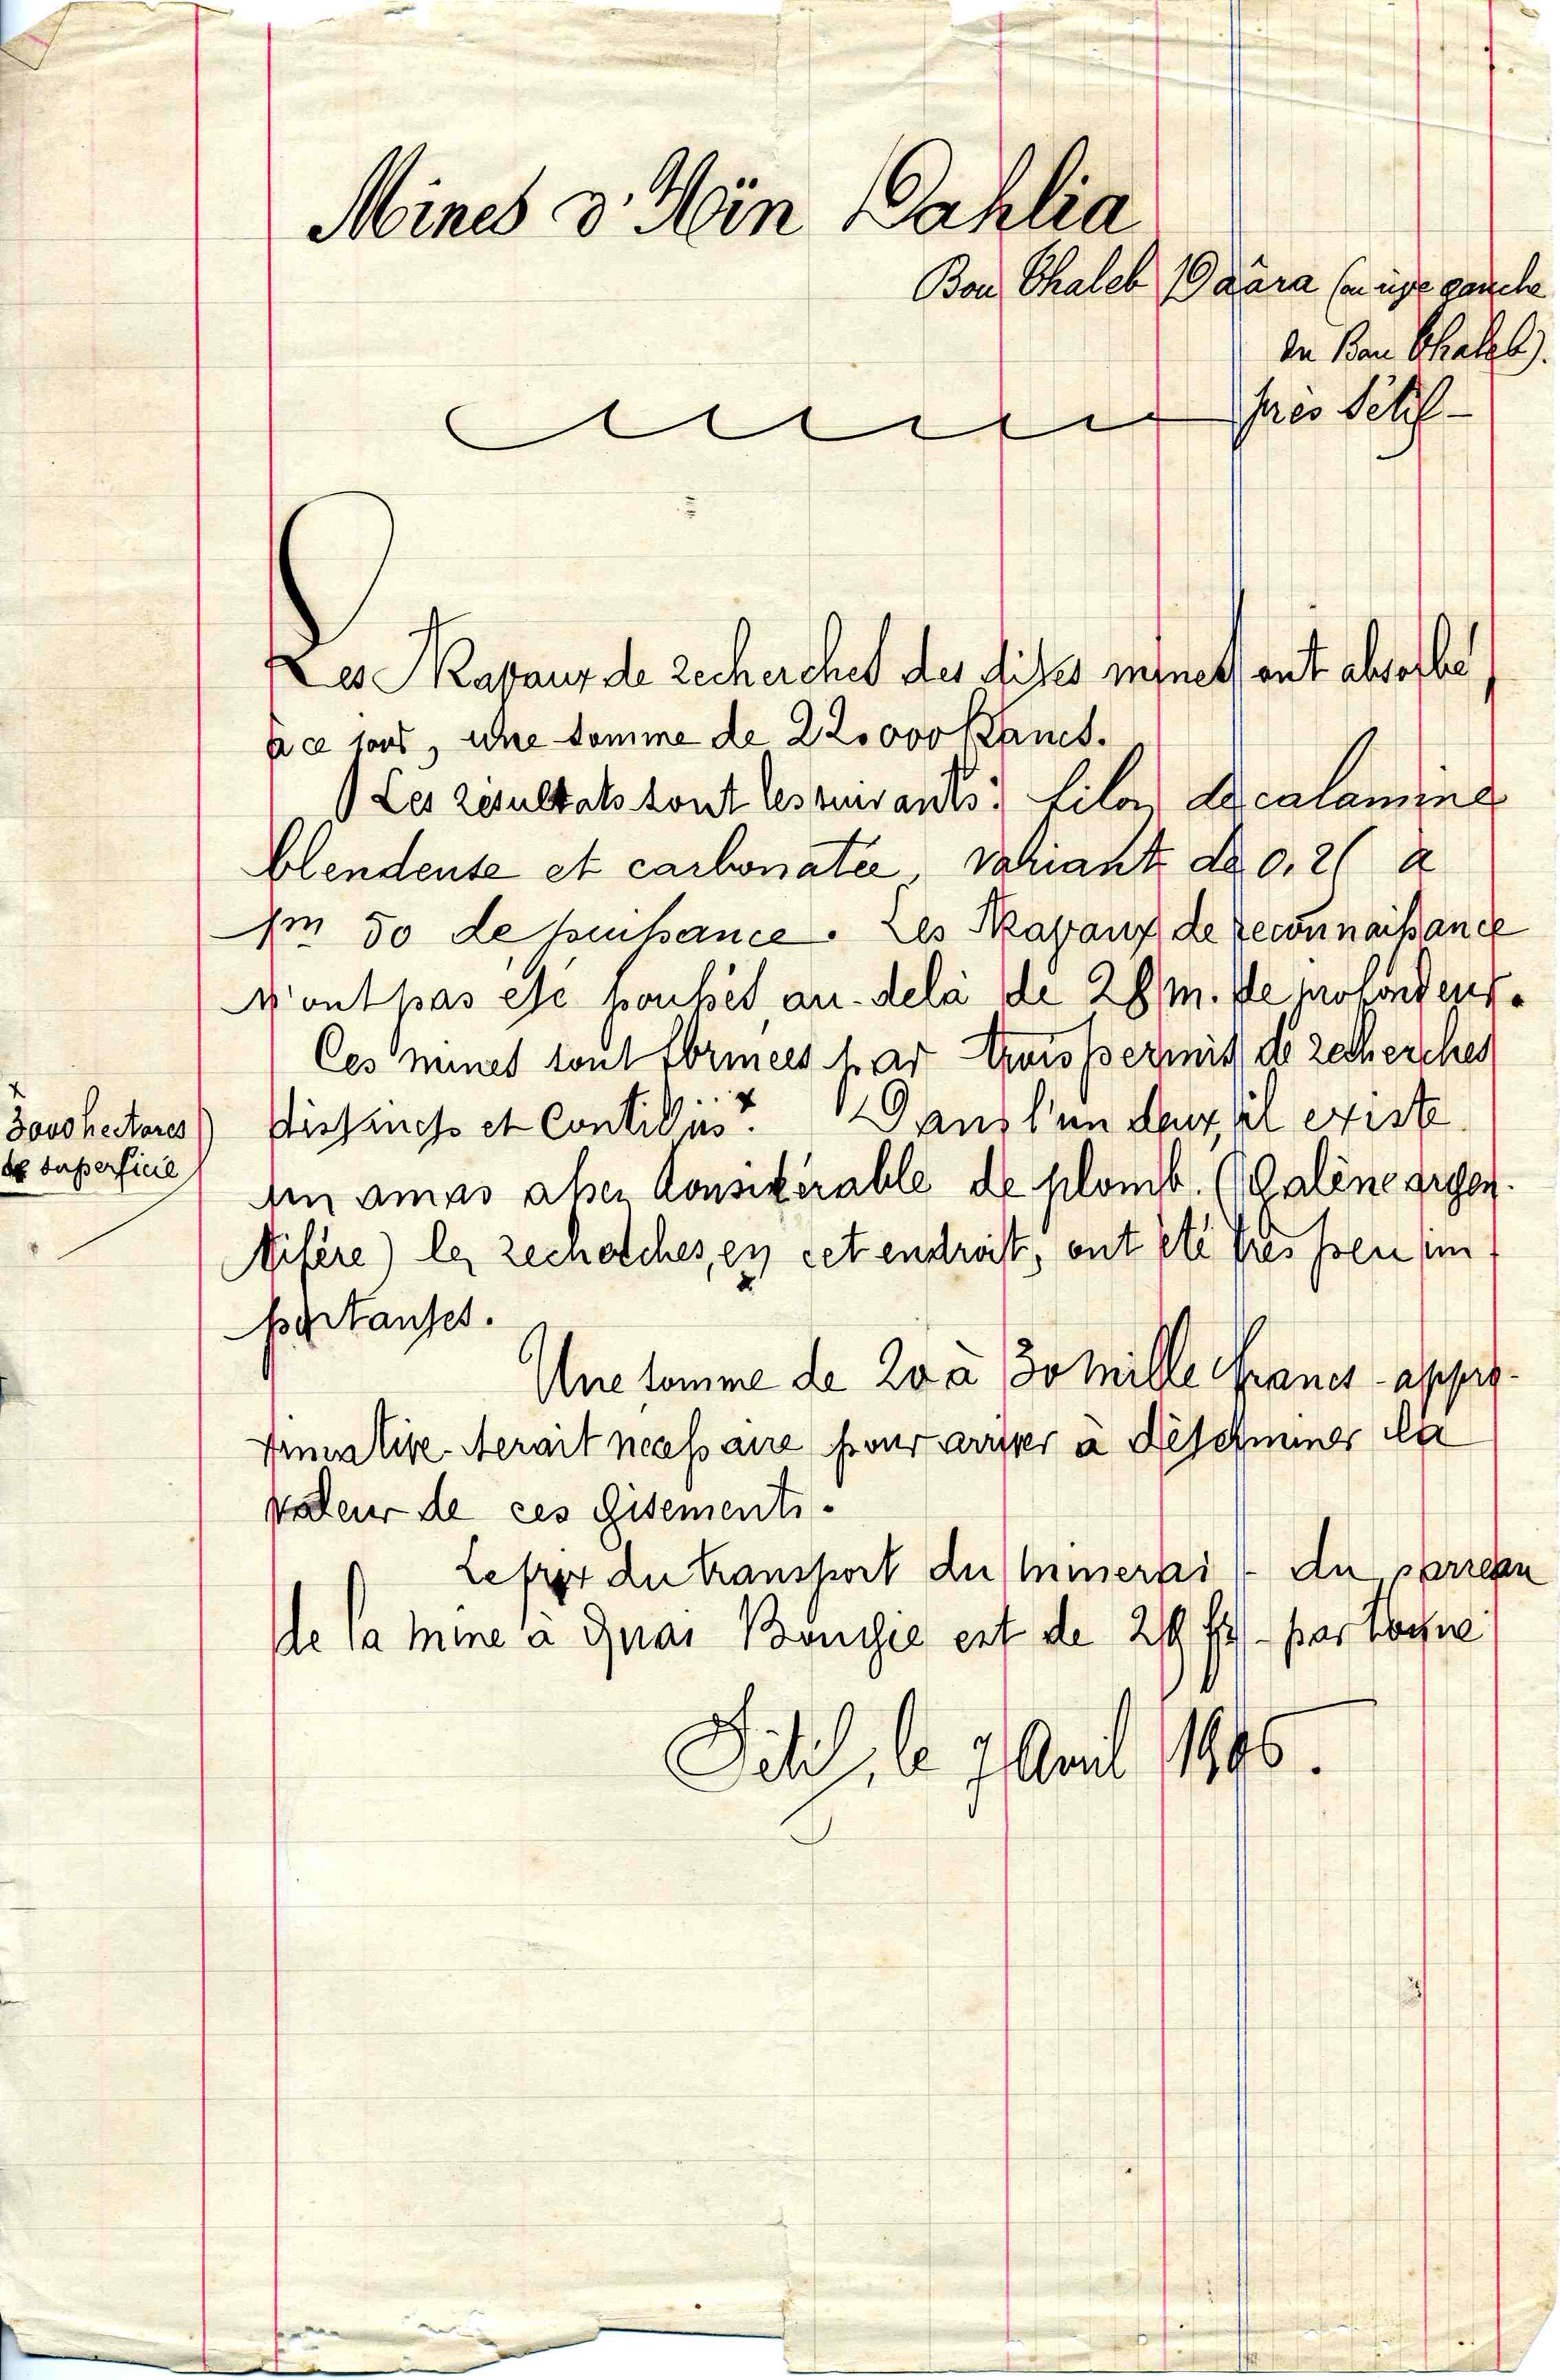 Mines d'Aïn Dahlia
Bou Thaleb Dâara (en
du Bou Thaleb).
près Sétif -
Les Travaux de recherches des dites mines ont absorbé,
à ce jour, une somme de 22.000 francs.
Les résultats sont les suivants: filon de calamine
blendeuse et carbonatée, variant de 0,25 à
1m 50 de puissance. Les Travaux de reconnaissance
n'ont pas été poussés au-delà de 28 m. de profondeur.
Ces mines sont formées par trois permis de recherches
distincts et Contigüs x. Dans l'un deux, il existe
x
3000 hectares
de superficie
un amas assez considérable de plomb. (Galène argen-
tifère) les recherches, en cet endroit, ont été très peu im
portantes.
Une somme de 20 à 30 mille francs - appro-
ximative - serait nécessaire pour arriver à déterminer la
valeur de ces Gisements.
Le prix du transport du minerai - du carreau
de la mine à Quai Bougie est de fr - par tonne
Sétif, le 7 Avril 1906.